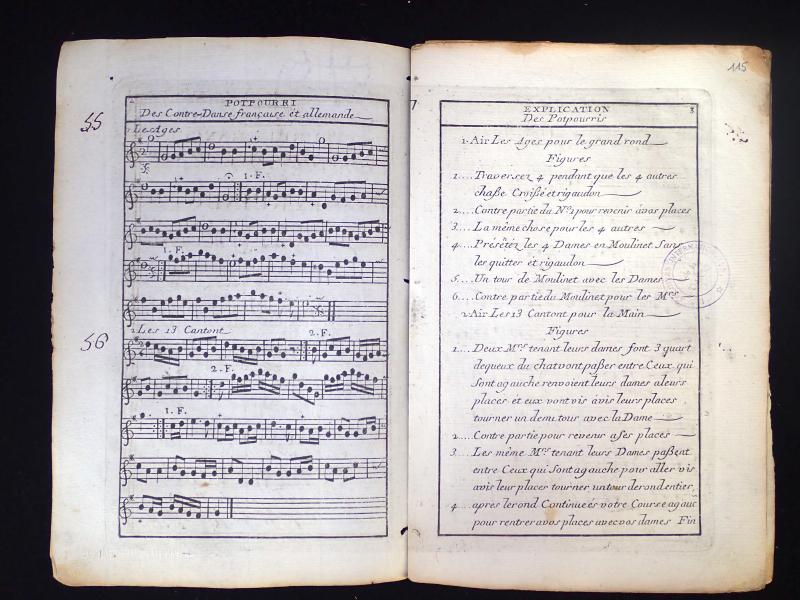 55
2
POTPOURRI
Des Contre-Danse française et allemande
1 Les Ages
1. F.
1. F.
56
2 Les 13 Cantont
2. F.
2. F.
1. F.
115
EXPLICATION 3
Des Potpourris
1. Air Les Ages pour le grand rond
Figures
1.... Traversez 4 pendant que les 4 autres
chaße Croißé et rigaudon
2.... Contre partie du No. 1 pour revenir àvos places
3.... La même chose pour les 4 autres
4.... Présétéz les 4 Dames en Moulinet Sans
les quitter et rigaudon
5.... Un tour de Moulinet avec les Dames
6.... Contre partie du Moulinet pour les Mrs.
2 Air Les 13 Cantont pour la Main
Figures
1.... Deux Mrs tenant leurs dames font 3 quart
dequeux du chat vont paßer entre Ceux qui
Sont agauche renvoient leurs dames aleurs
places et eux vont vis àvis leurs places
tourner un demi tour avec la Dame
2.... Contre partie pour revenir ases places
3.... Les même Mrs tenant leurs Dames paßent
entre Ceux qui Sont agauche pour aller vis
avis leur places tourner un tour de rond entier,
4... apres le rond Continueés votre Course agauc
pour rentrer avos places avec vos dames Fin